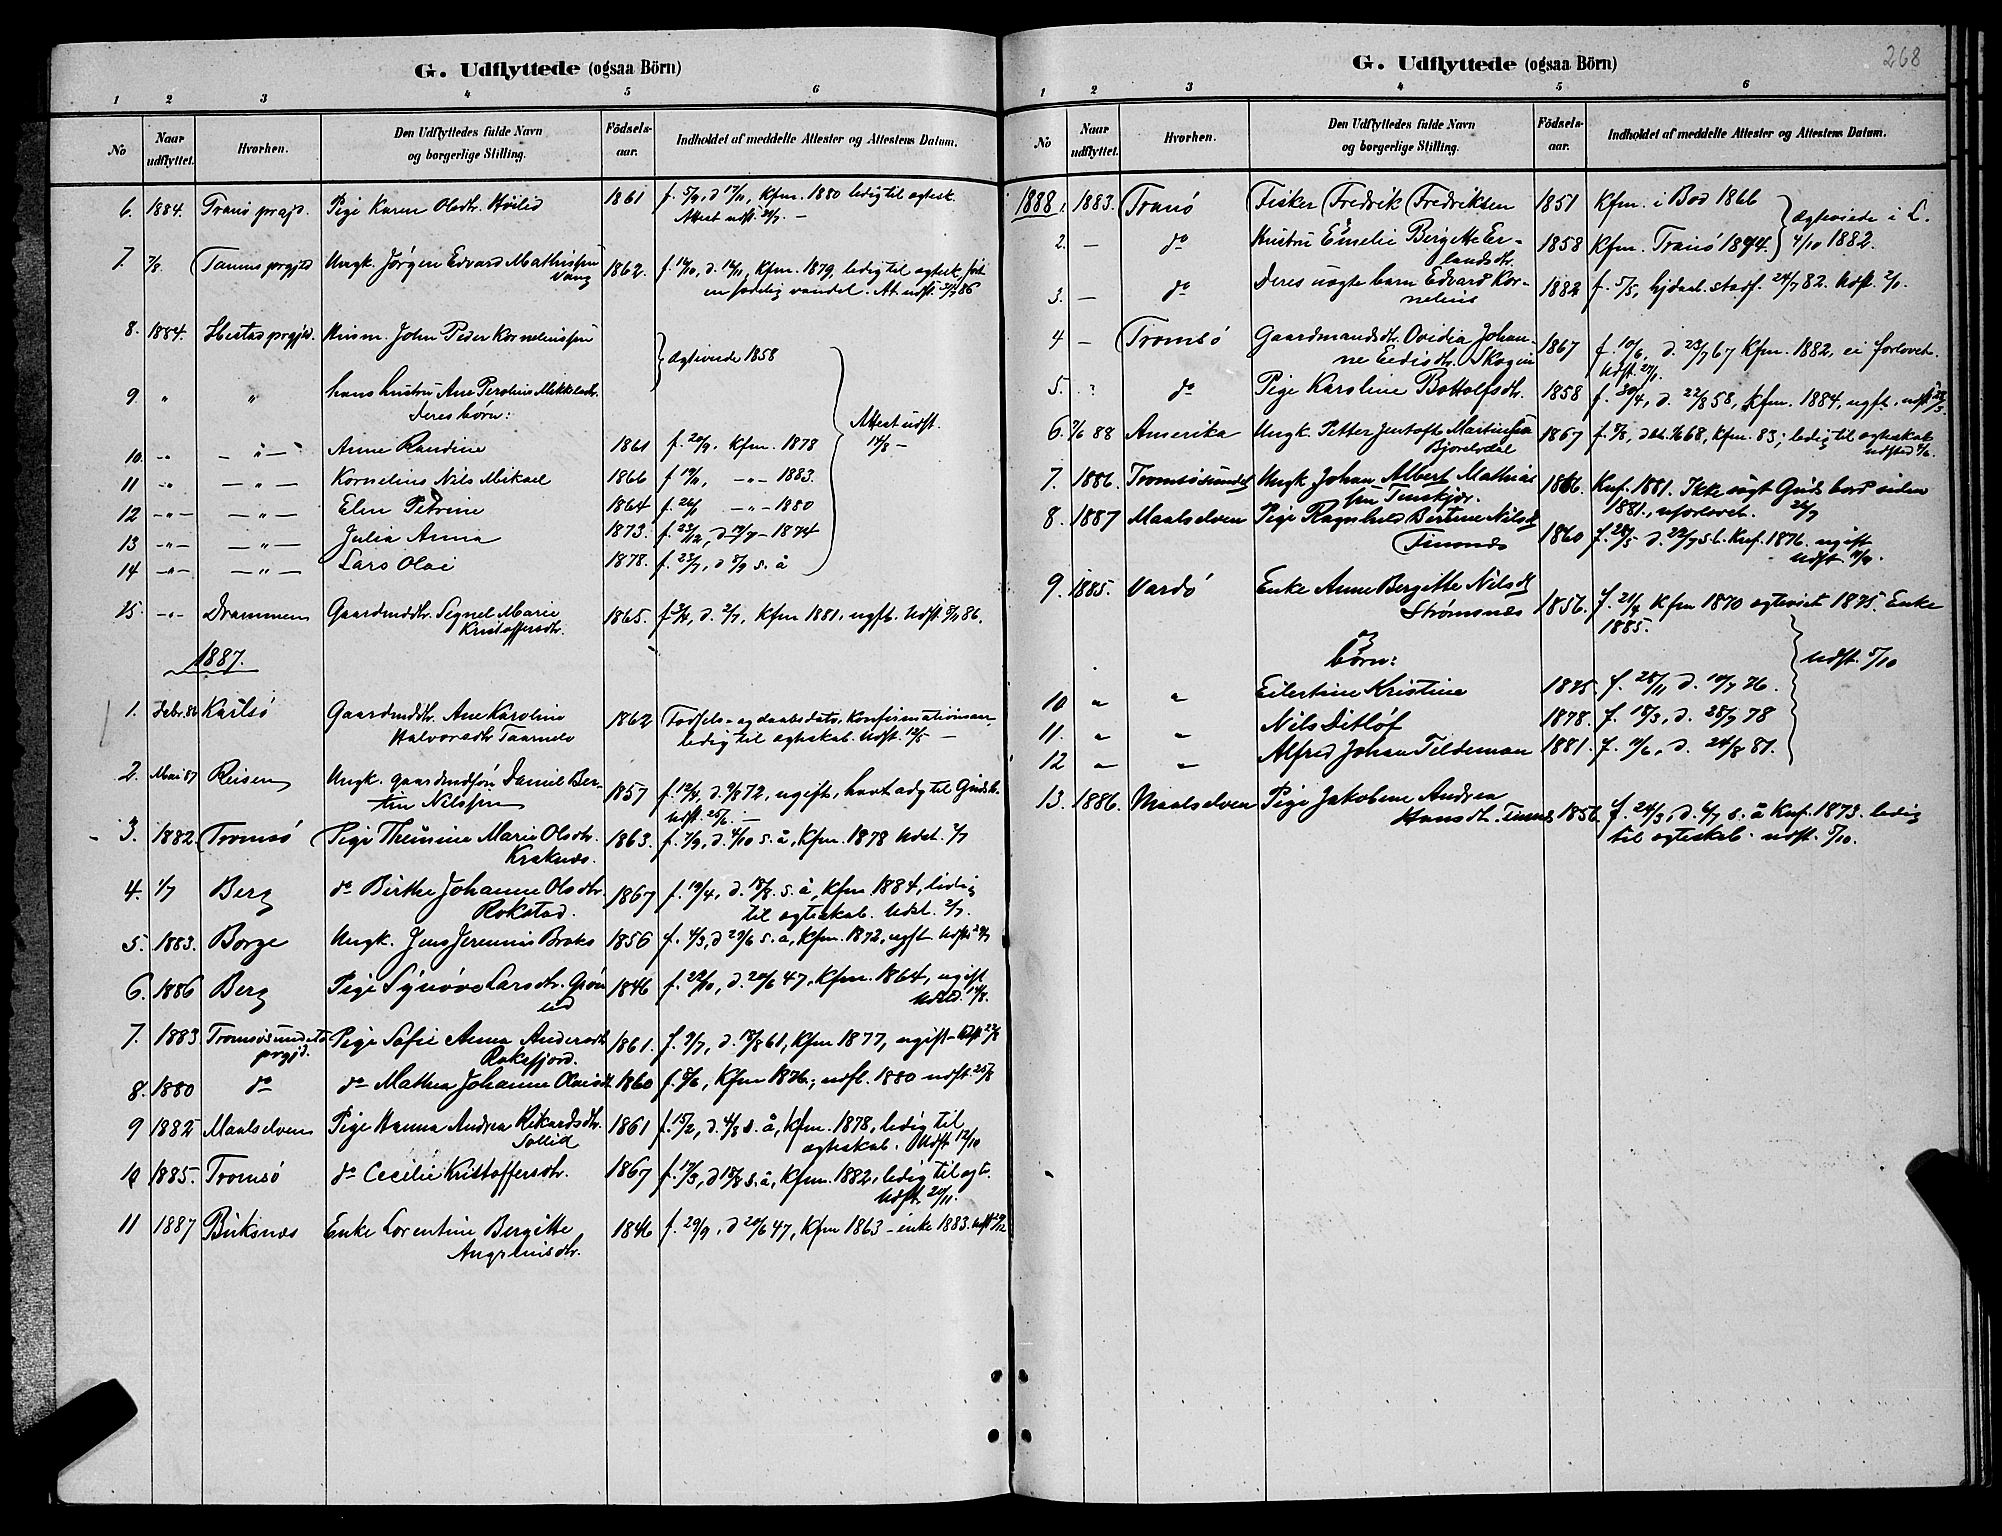 G. Udflyttede (ogsaa Börn)
1 2 3 4 5 6
No Naar udflyttet. Hvorhen. Den Udflyttedes fulde Navn og borgerlige Stilling. Födsels-aar. Indholdet af meddelte Attester og Attestens Datum.
6. 1884. Tranö prgjd. Pige Karen Olsdtr. 1861 f. 5/9, d 17/11, Kfm. 1880 ledig til egtesk.
Attest udst.
7. 7/8. prgjd. Ungk. Jørgen Edvard Mathissen 1862. Kfm. 1879, ledig til egtesk., ført
Vang en sædelig vandel. At. udst. 86
8. 1884. Ibestad prgjd. Husm. John Peder Kornelinssen
Egteviede 1858
9 " " hans hustru Ane Mikkelsdtr.
Deres börn:
Attest udst.
14/8 –
10. -"- -"- Anne Randine 1861 f. 20/9. Kfm. 1878
11 -"- -"- Kornelius Nils Mikael 1866 f 19/11, -"- 1883.
12 -"- -"- Elen Petrine 1864 f. -"- 1880
13 -"- -"- Julia Anna 1873. f. 23/12, d 1874
14 -"- -"- Lars Olai 1878. f. 23/7, d. 8/9 s. å
15. -"- Drammen Gaardmdtr. Signel Marie 1865. Kfm 1881. ugft. Udst. 86.
Kristoffersdtr.
1887.
1. Febr. 86 Karlsö Gaardmdtr. Ane Karoline 1862 Fødsels- og daabsdato, Konfirmationsan-
Halvorsdtr. ledig til egteskab. Udst. 12/5 –
2. Mai 87 Reisen Ungk. gaardmdsön Daniel Ber-
tin Nilssen 1857 72, ugift, havt adg til Guds b.
Udst. 25/6. –
3. 1882. Tromsö Pige Marie Olsdtr. 1863. f. 7/9, d. 4/10 s. å, Kfm. 1878 Udst. 2/7
Kraknæs.
4. 1/7 Berg do Birthe Johanne Olsdtr. 1867 f. 19/4, d. 18/8. s. å, Kfm. 1884, ledig
Rokstad. til egteskab. Udst. 2/7.
5. 1883. Borge Ungk. Jens Jeremias 1856 f. 4/3, d 29/6 s. å, Kfm. 1872, ugft. Udst.
6. 1886 Berg Pige Synöve Larsdtr. 1846 f. 22/10, d. 20/6 47, Kfm. 1864, ugift
Udstd. 14/8.
7. 1883. Tromsösundets Pige Sofie Anna Andersdtr. 1861. f. 9/7, d. 18/8 61, Kfm 1877, ugift
prgjd. Rakefjord.
8. 1880 do do Mathea Johanne 1860 f. 8/6, Kfm 1876; udfl. 1880 udst. 25/8
9 1882 Maalselven Pige Hanna Andrea Rikardsdtr. 1861 f. 15/2, d. 4/8 s. å, Kfm. 1878, ledig til
Sollid egteskab. Udst. 12/10
10 1885. Tromsö do Cecilie Kristoffersdtr. 1867 d 18/8 s. å, Kfm. 1882, ledig til egt.
Udst. 20/11.
11 1887 Buksnæs Enke Lorentine Bergitte 1846 f. 29/9, d 20/6 47, Kfm 1863 – enke 1883. udst.
G. Udflyttede (ogsaa Börn)
268
1 2 3 4 5 6
No Naar udflyttet. Hvorhen. Den Udflyttedes fulde Navn og borgerlige Stilling. Födsels-aar. Indholdet af meddelte Attester og Attestens Datum.
1888 1. 1883. Tranö Fisker Fredrik Fredriksen 1851 Kfm. i Bod 1866
Egteviede i L.
4/10 1882.
2. – do Hustru Emelie Bergitte Er-
landsdtr. 1858 Kfm. Tranö 1874.
3. – do Deres uegte barn Edvard Kor-
nelius 1882 f. 5/5, hjdaab. stadf. 24/7 82. Udst. 2/1.
4 – Tromsö Gaardmandsdtr. Ovidia Johan-
ne Eedisdtr. Skogen 1867 f. 10/6, d. 23/7 67 Kfm. 1882, ei forlovet.
Udst. 27/1.
5. " do Pige Karoline Bottolfsdtr. 1858 f. 30/4, d. 22/8 58, Kfm. 1884, ugft, udst.
6. 88 Amerika Ungk. Petter Jentoft Martinssen 1867 68, Kfm. 83; ledig til egteskab
Bjorelvdal udsted
7. 1886. Tromsösundet Ungk Johan Albert Mathias 1866. Knf. 1881. Ikke sögt Guds bord siden
sen 1881., uforlovet. 26/7
8. 1887 Maalselven Pige Ragnhild Bertine Nilsd.
Finnæs 1860 Knf. 1876. ugift
Udst.
9. 1885. Vardö Enke Anne Bergitte Nilsd
Strömsnæs 1856. f. 21/9 Kfm 1870 egteviet 1875. Enke
1885.
3 börn:
Udst. 5/10
10 " " Eilertine Kristine 1875 f. 28/11 d. 19/7 76.
11. " " Nils Ditlöf 1878. f. 18/3, d. 28/7 78
12 " " Alfred Johan Tildeman 1881. f. 9/6, d. 24/8 81.
13. 1886. Maalselven Pige Jakobine Andrea
Hansdtr. 1856. f. 24/3, d. 6/7 s. å Knf. 1873. ledig
til egteskab. udst. 5/10.